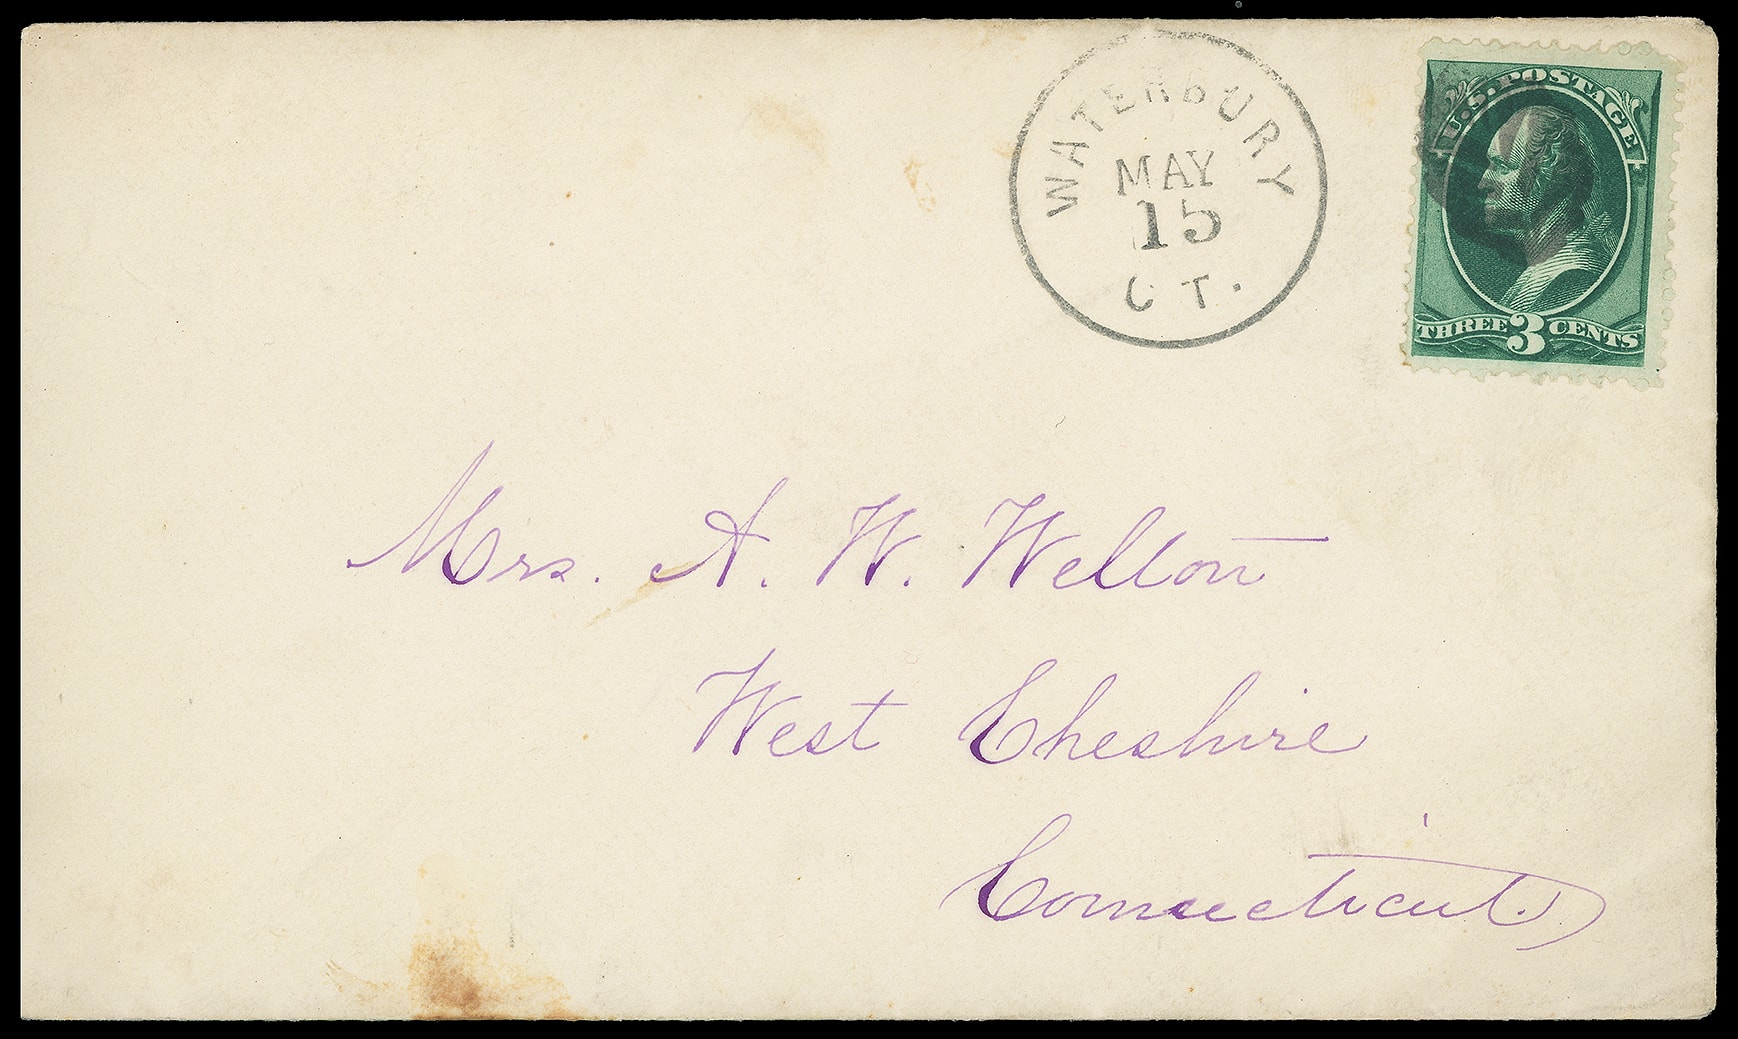 WATERBURY
MAY
15
CT.
U.S. POSTAGE
THREE 3 CENTS
Mrs. A. W. Welton
West Cheshire
Connecticut.